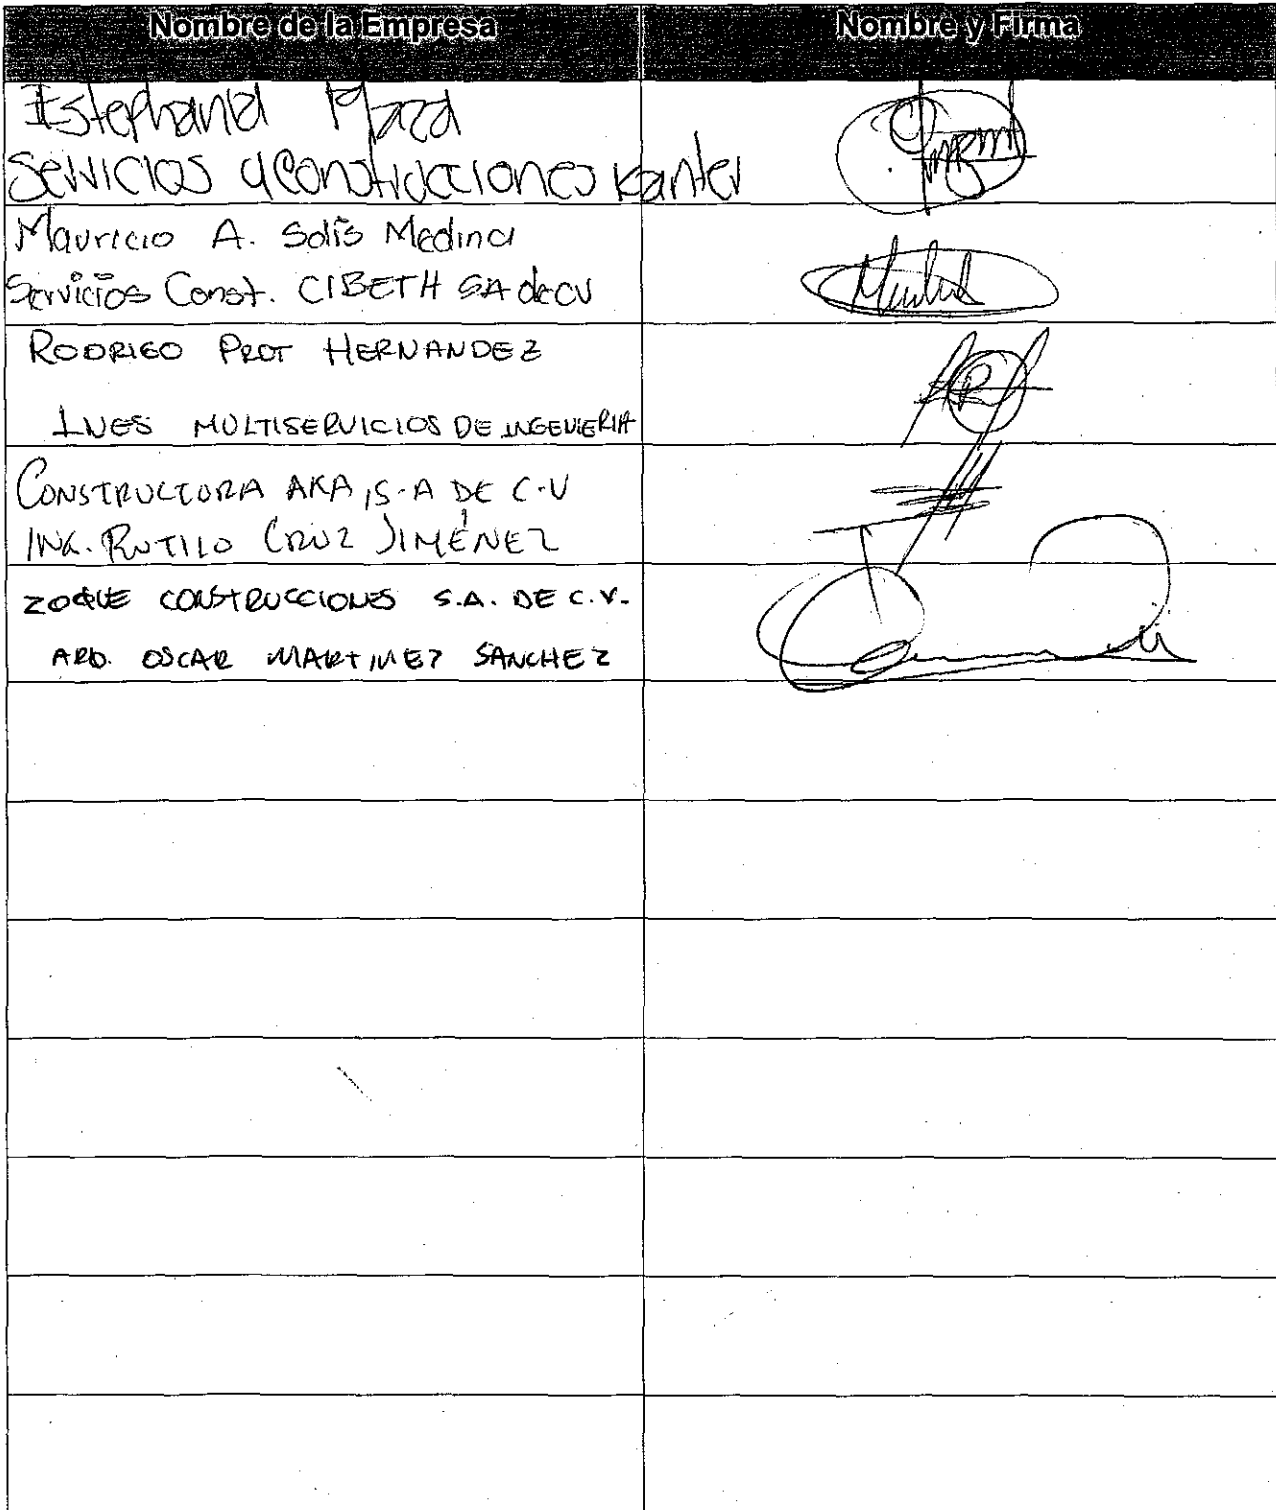 Nombre de la Empresa
Nombre y Firma
Estephania Maza
Servicios y Construcciones Kanter
Mauricio A. Solís Medina
Servicios Const. CIBETH SA de CV
RODRIGO PROT HERNANDEZ
INES MULTISERVICIOS DE INGENIERIA
CONSTRUCTORA AKA, S.A DE C.V
ING. RUTILO CRUZ JIMÉNEZ
ZOQUE CONSTRUCCIONES S.A. DE C.V.
ARQ. OSCAR MARTINEZ SANCHEZ